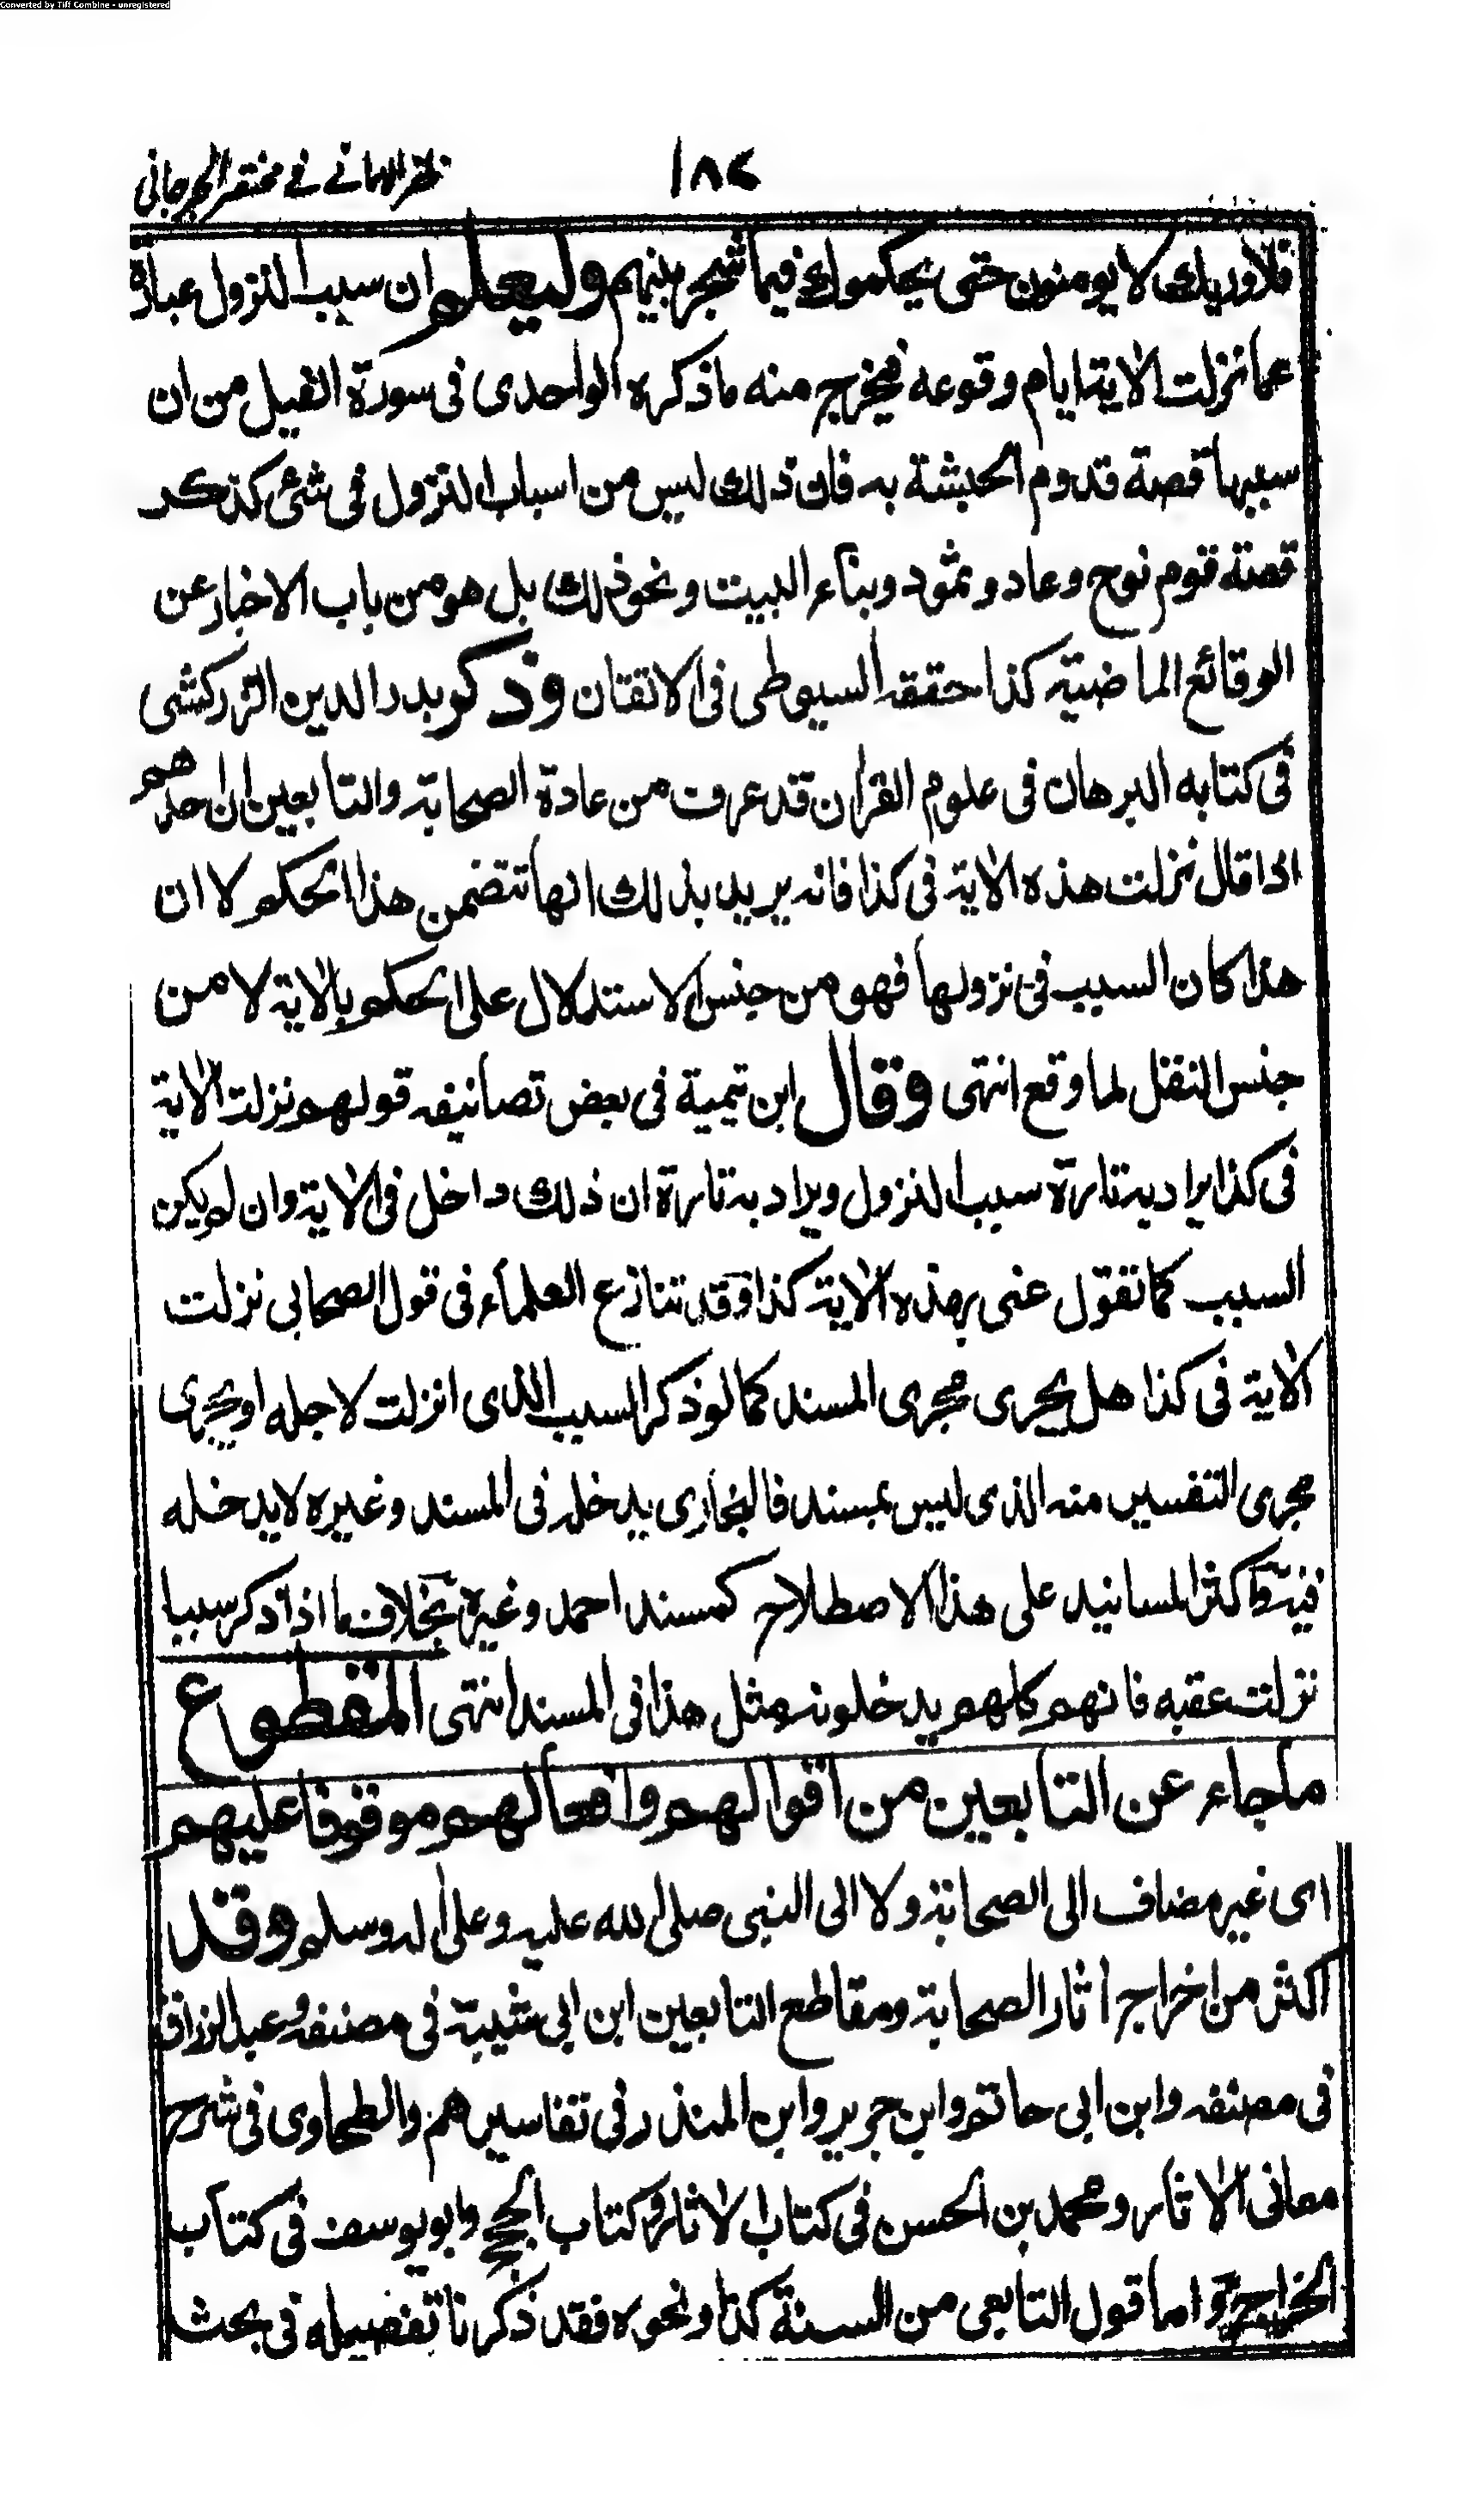 Converted by Tiff Combine - unregistered
ظفر الامانے فے مختصر الجرجانی
١٨٢
فلا وربك لا يومنون حتى يحكموك فيما شجر بينهم وليعلم ان سبب النزول عبارة
عما نزلت الاية ايام وقوعه فيخرج منه ما ذكره الواحدى فى سورة الفيل من ان
سببها قصة قدوم الحبشة به فان ذلك ليس من اسباب النزول فى شئ كذكر
قصة قوم نوح وعاد وثمود وبناء البيت ونحو ذلك بل هو من باب الاخبار عن
الوقائع الماضية كذا حققه السيوطى فى الاتقان وذكر بدر الدين الزركشى
فى كتابه البرهان فى علوم القران قد عرف من عادة الصحابة والتابعين ان احدهم
اذا قال نزلت هذه الاية فى كذا فانه يريد بذلك انها تتضمن هذا الحكم لا ان
هذا كان السبب فى نزولها فهو من جنس الاستدلال على الحكم بالاية لا من
جنس النقل لما وقع انتهى وقال ابن تيمية فى بعض تصانيفه قولهم نزلت الاية
فى كذا يراد به تارة سبب النزول ويراد به تارة ان ذلك داخل فى الاية وان لم يكن
السبب كما تقول عنى بهذه الاية كذا وقد تنازع العلماء فى قول الصحابى نزلت
الاية فى كذا هل يجرى مجرى المسند كما لو ذكر السبب الذى انزلت لاجله او يجرى
مجرى التفسير منه الذى ليس بمسند فالبخارى يدخله فى المسند وغيره لا يدخله
فيه واكثر المسانيد على هذا الاصطلاح كمسند احمد وغيره بخلاف ما اذا ذكر سببا
نزلت عقبه فانهم كلهم يدخلون مثل هذا فى المسند انتهى المقطوع
ما جاء عن التابعين من اقوالهم وافعالهم موقوفا عليهم
اى غير مضاف الى الصحابة ولا الى النبى صلى الله عليه وعلى اله وسلم وقد
اكثر من اخراج اثار الصحابة ومقاطع التابعين ابن ابى شيبة فى مصنفه وعبد الرزاق
فى مصنفه وابن ابى حاتم وابن جرير وابن المنذر فى تفاسيرهم والطحاوى فى شرح
معانى الاثار ومحمد بن الحسن فى كتاب الاثار وكتاب الحجج وابو يوسف فى كتاب
الخراج واما قول التابعى من السنة كذا ونحوه فقد ذكرنا تفصيله فى بحث